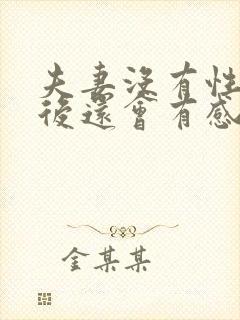 夫妻沒有性
後還會有感
金某某